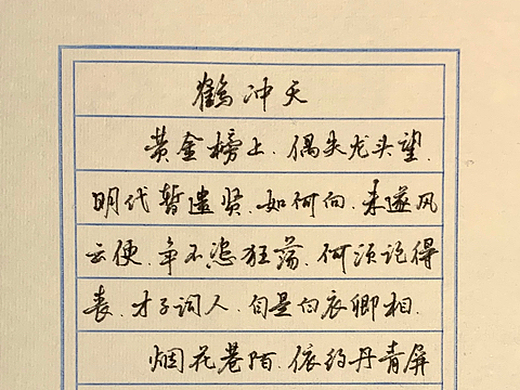 鹤冲天
黄金榜上.偶失龙头望.
明代暂遗贤.如何向.未遂风
云便.争不恣狂荡.何须论得
丧.才子词人.自是白衣卿相.
烟花巷陌.依约丹青屏